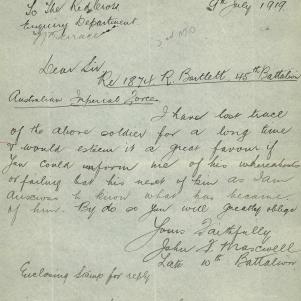 To The Red Cross
9th July 1919.
Enquiry Department
Dear Sir
Re 1874 R. Bartlett, 45th Battalion
Australian Imperial Force
I have lost trace
of the above soldier for a long time
& would esteem it a great favour if
you could inform me of his whereabouts
or failing that his next of kin as I am
anxious to know what has become
of him. By do so you will greatly oblige
Yours Faithfully
John Maxwell
Late 10th Battalion
Enclosing stamp for reply